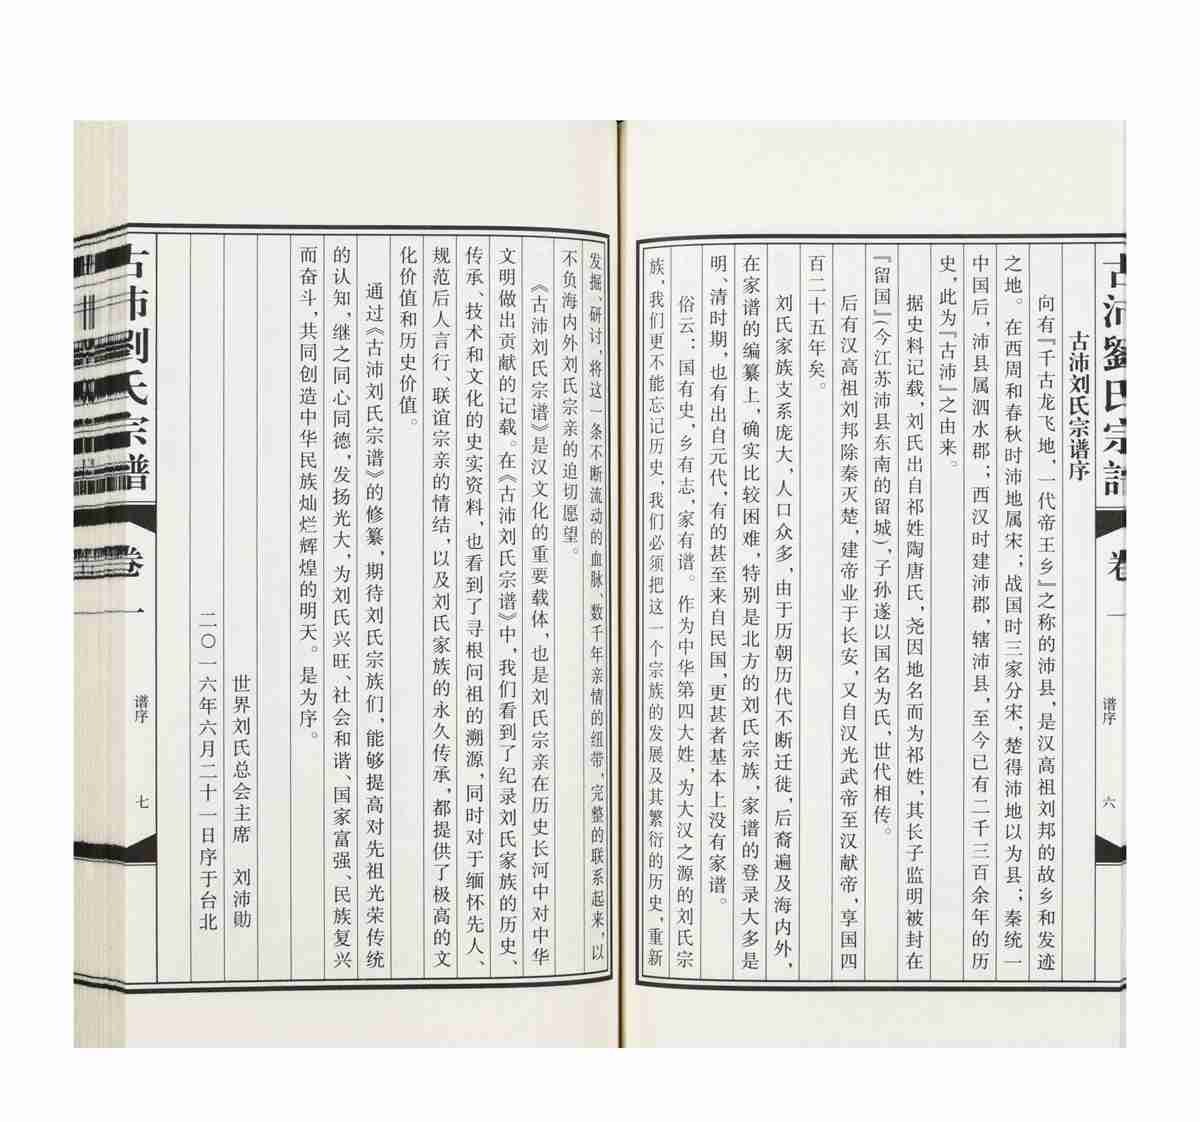 古沛劉氏宗譜
卷一
谱序
六
古沛刘氏宗谱序
向有『千古龙飞地，一代帝王乡』之称的沛县，是汉高祖刘邦的故乡和发迹
之地。在西周和春秋时沛地属宋；战国时三家分宋，楚得沛地以为县；秦统一
中国后，沛县属泗水郡；西汉时建沛郡，辖沛县，至今已有二千三百余年的历
史，此为『古沛』之由来。
据史料记载，刘氏出自祁姓陶唐氏，尧因地名而为祁姓，其长子监明被封在
『留国』（今江苏沛县东南的留城），子孙遂以国名为氏，世代相传。
后有汉高祖刘邦除秦灭楚，建帝业于长安，又自汉光武帝至汉献帝，享国四
百二十五年矣。
刘氏家族支系庞大，人口众多，由于历朝历代不断迁徙，后裔遍及海内外，
在家谱的编纂上，确实比较困难，特别是北方的刘氏宗族，家谱的登录大多是
明、清时期，也有出自元代，有的甚至来自民国，更甚者基本上没有家谱。
俗云：国有史，乡有志，家有谱。作为中华第四大姓，为大汉之源的刘氏宗
族，我们更不能忘记历史，我们必须把这一个宗族的发展及其繁衍的历史，重新
发掘、研讨，将这一条不断流动的血脉、数千年亲情的纽带，完整的联系起来，以
不负海内外刘氏宗亲的迫切愿望。
《古沛刘氏宗谱》是汉文化的重要载体，也是刘氏宗亲在历史长河中对中华
文明做出贡献的记载。在《古沛刘氏宗谱》中，我们看到了纪录刘氏家族的历史、
传承、技术和文化的史实资料，也看到了寻根问祖的溯源，同时对于缅怀先人、
规范后人言行、联谊宗亲的情结，以及刘氏家族的永久传承，都提供了极高的文
化价值和历史价值。
通过《古沛刘氏宗谱》的修纂，期待刘氏宗族们，能够提高对先祖光荣传统
的认知，继之同心同德，发扬光大，为刘氏兴旺、社会和谐、国家富强、民族复兴
而奋斗，共同创造中华民族灿烂辉煌的明天。是为序。
世界刘氏总会主席　刘沛勋
二〇一六年六月二十一日序于台北
古沛劉氏宗譜
卷一
谱序
七